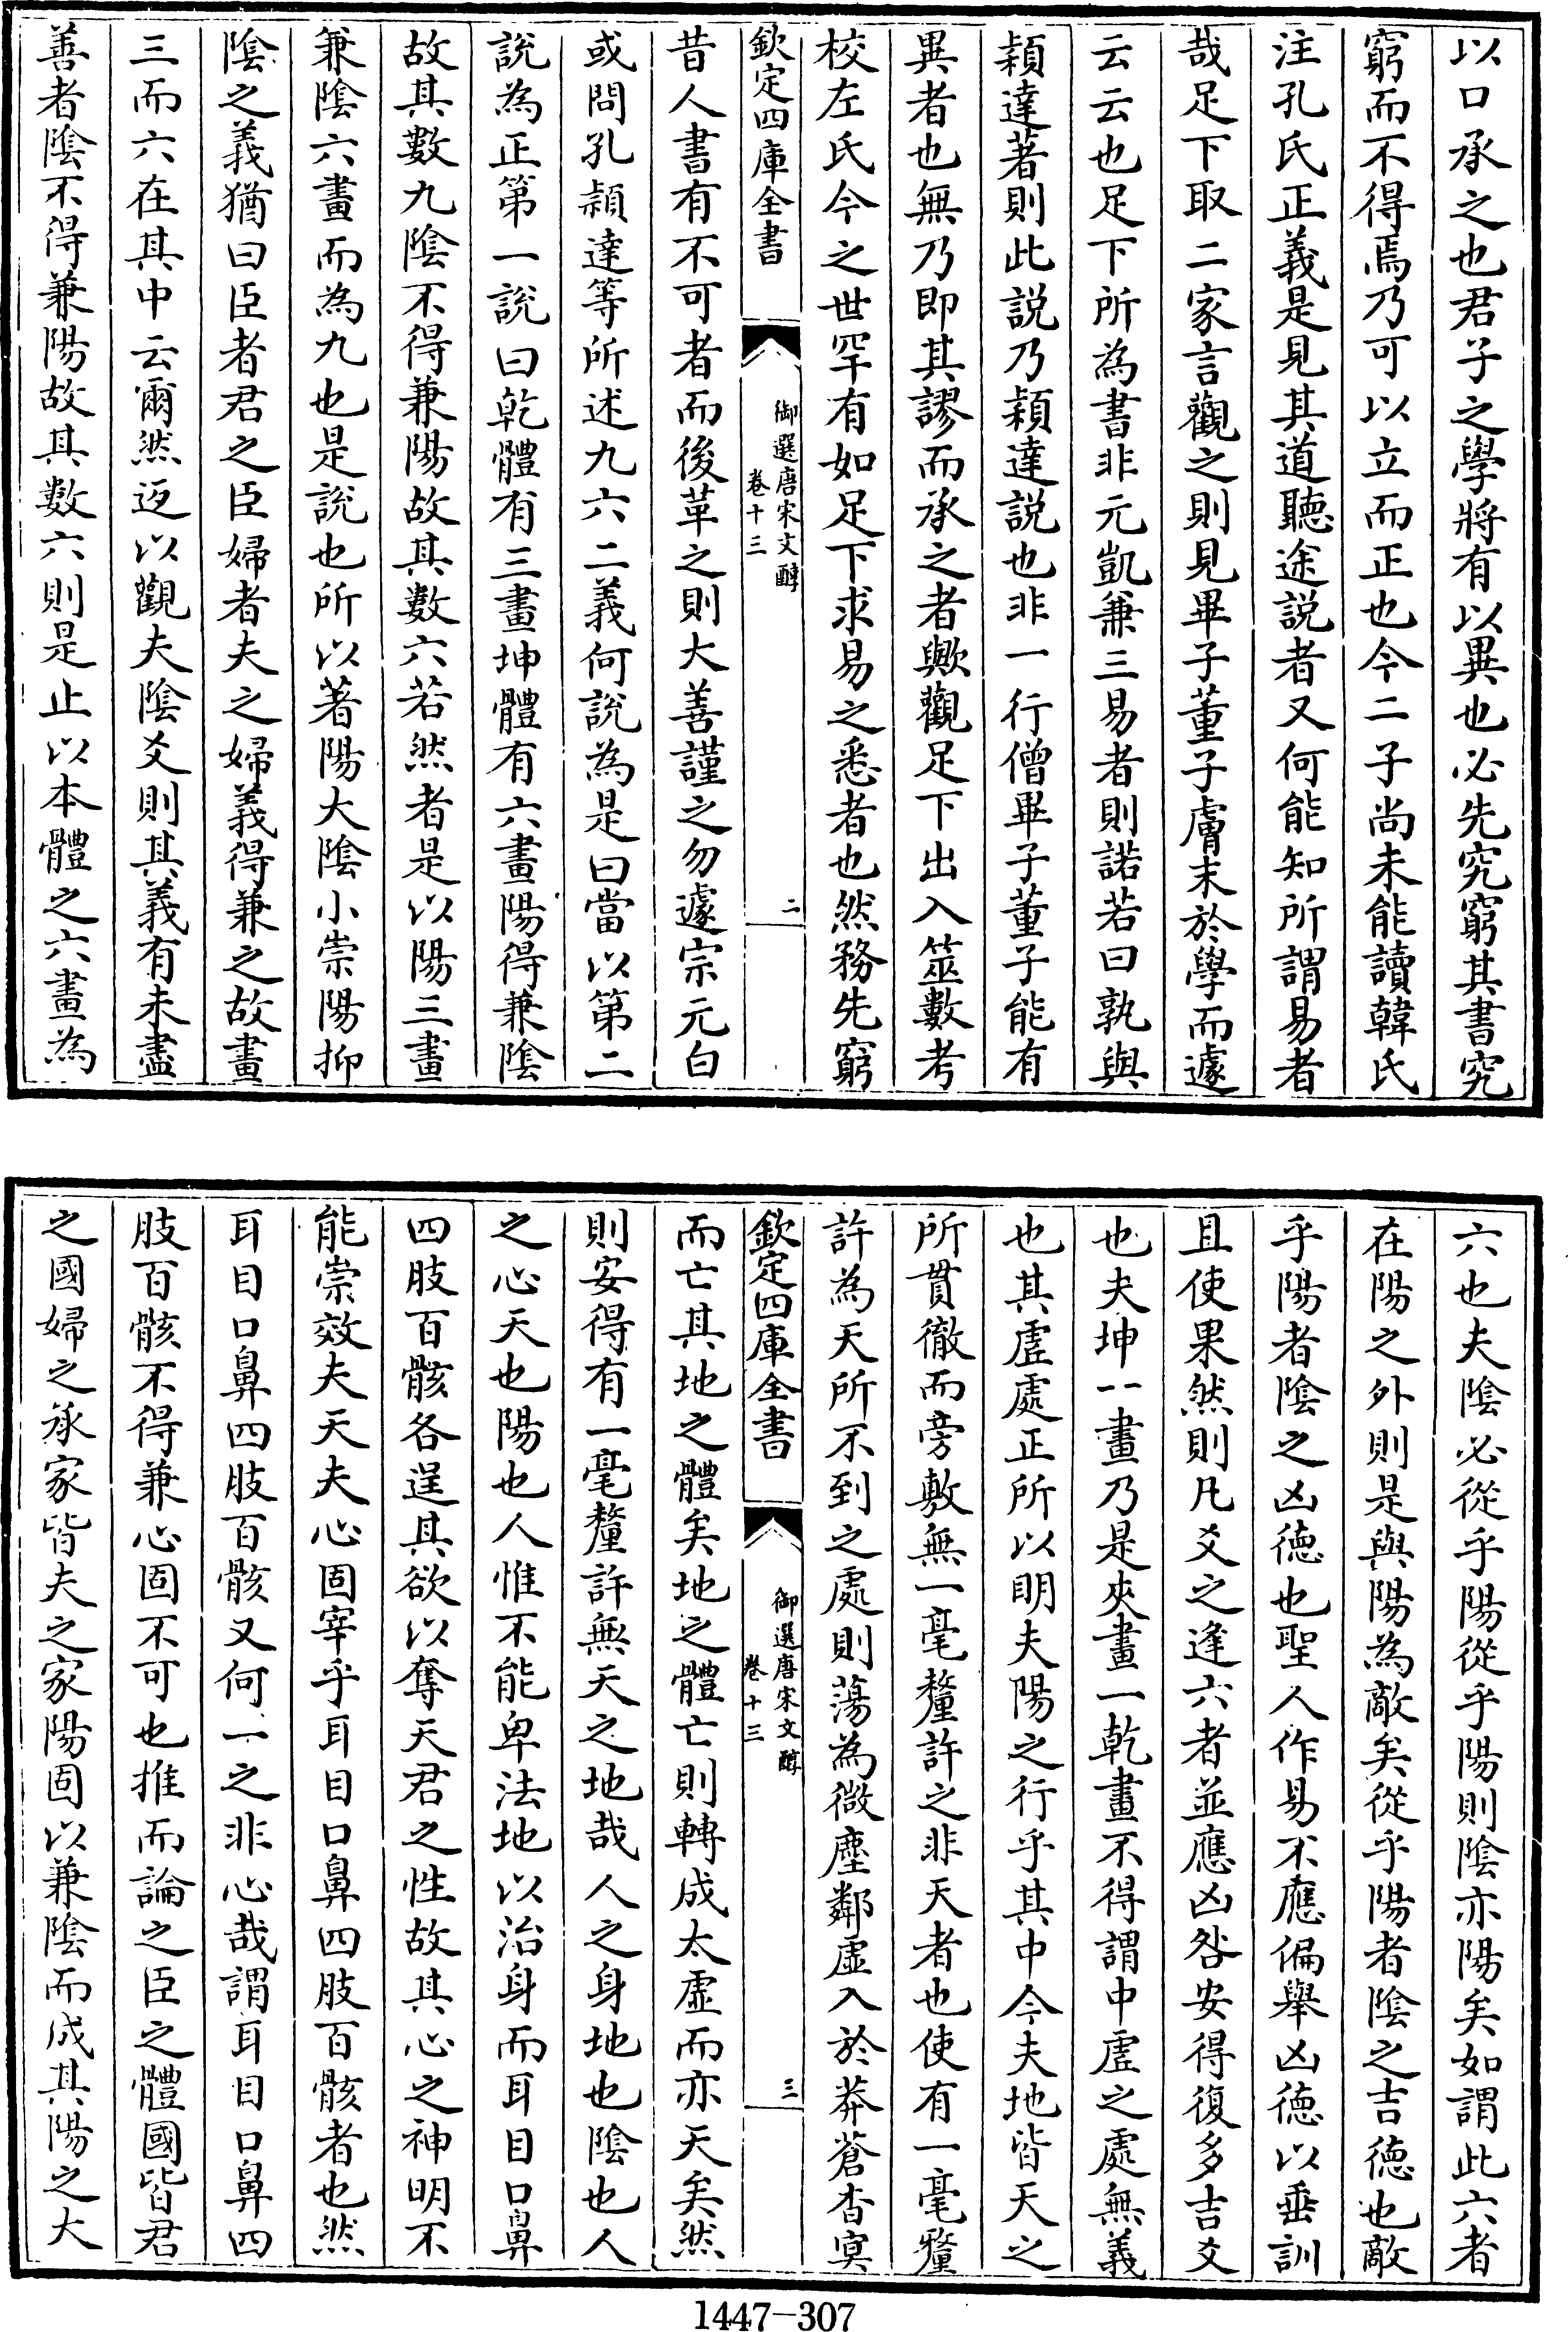 以口承之也君子之學將有以異也必先究窮其書究
窮而不得焉乃可以立而正也今二子尚未能讀韓氏
注孔氏正義是見其道聽途説者又何能知所謂易者
哉足下取二家言觀之則見畢子董子膚末於學而遽
云云也足下所為書非元凱兼三易者則諾若曰孰與
穎達著則此説乃穎達説也非一行僧畢子董子能有
異者也無乃即其謬而承之者歟觀足下出入筮數考
校左氏今之世罕有如足下求易之悉者也然務先窮
欽定四庫全書
御選唐宋文醇
卷十三
二
昔人書有不可者而後革之則大善謹之勿遽宗元白
或問孔穎達等所述九六二義何說為是曰當以第二
說為正第一說曰乾體有三畫坤體有六畫陽得兼陰
故其數九陰不得兼陽故其數六若然者是以陽三畫
兼陰六畫而為九也是說也所以著陽大陰小崇陽抑
陰之義猶曰臣者君之臣婦者夫之婦義得兼之故畫
三而六在其中云爾然返以觀夫陰爻則其義有未盡
善者陰不得兼陽故其數六則是止以本體之六畫為
六也夫陰必從乎陽從乎陽則陰亦陽矣如謂此六者
在陽之外則是與陽為敵矣從乎陽者陰之吉德也敵
乎陽者陰之凶德也聖人作易不應偏舉凶德以垂訓
且使果然則凡爻之逢六者並應凶咎安得復多吉爻
也夫坤一畫乃是夾畫一乾畫不得謂中虛之處無義
也其虛處正所以明夫陽之行乎其中今夫地皆天之
所貫徹而旁敷無一毫釐許之非天者也使有一毫釐
許為天所不到之處則蕩為微塵鄰虛入於莽蒼杳冥
欽定四庫全書
御選唐宋文醇
卷十三
三
而亡其地之體矣地之體亡則轉成太虛而亦天矣然
則安得有一毫釐許無天之地哉人之身地也陰也人
之心天也陽也人惟不能卑法地以治身而耳目口鼻
四肢百骸各逞其欲以奪天君之性故其心之神明不
能崇效夫天夫心固宰乎耳目口鼻四肢百骸者也然
耳目口鼻四肢百骸又何一之非心哉謂耳目口鼻四
肢百骸不得兼心固不可也推而論之臣之體國皆君
之國婦之承家皆夫之家陽固以兼陰而成其陽之大
1447-307